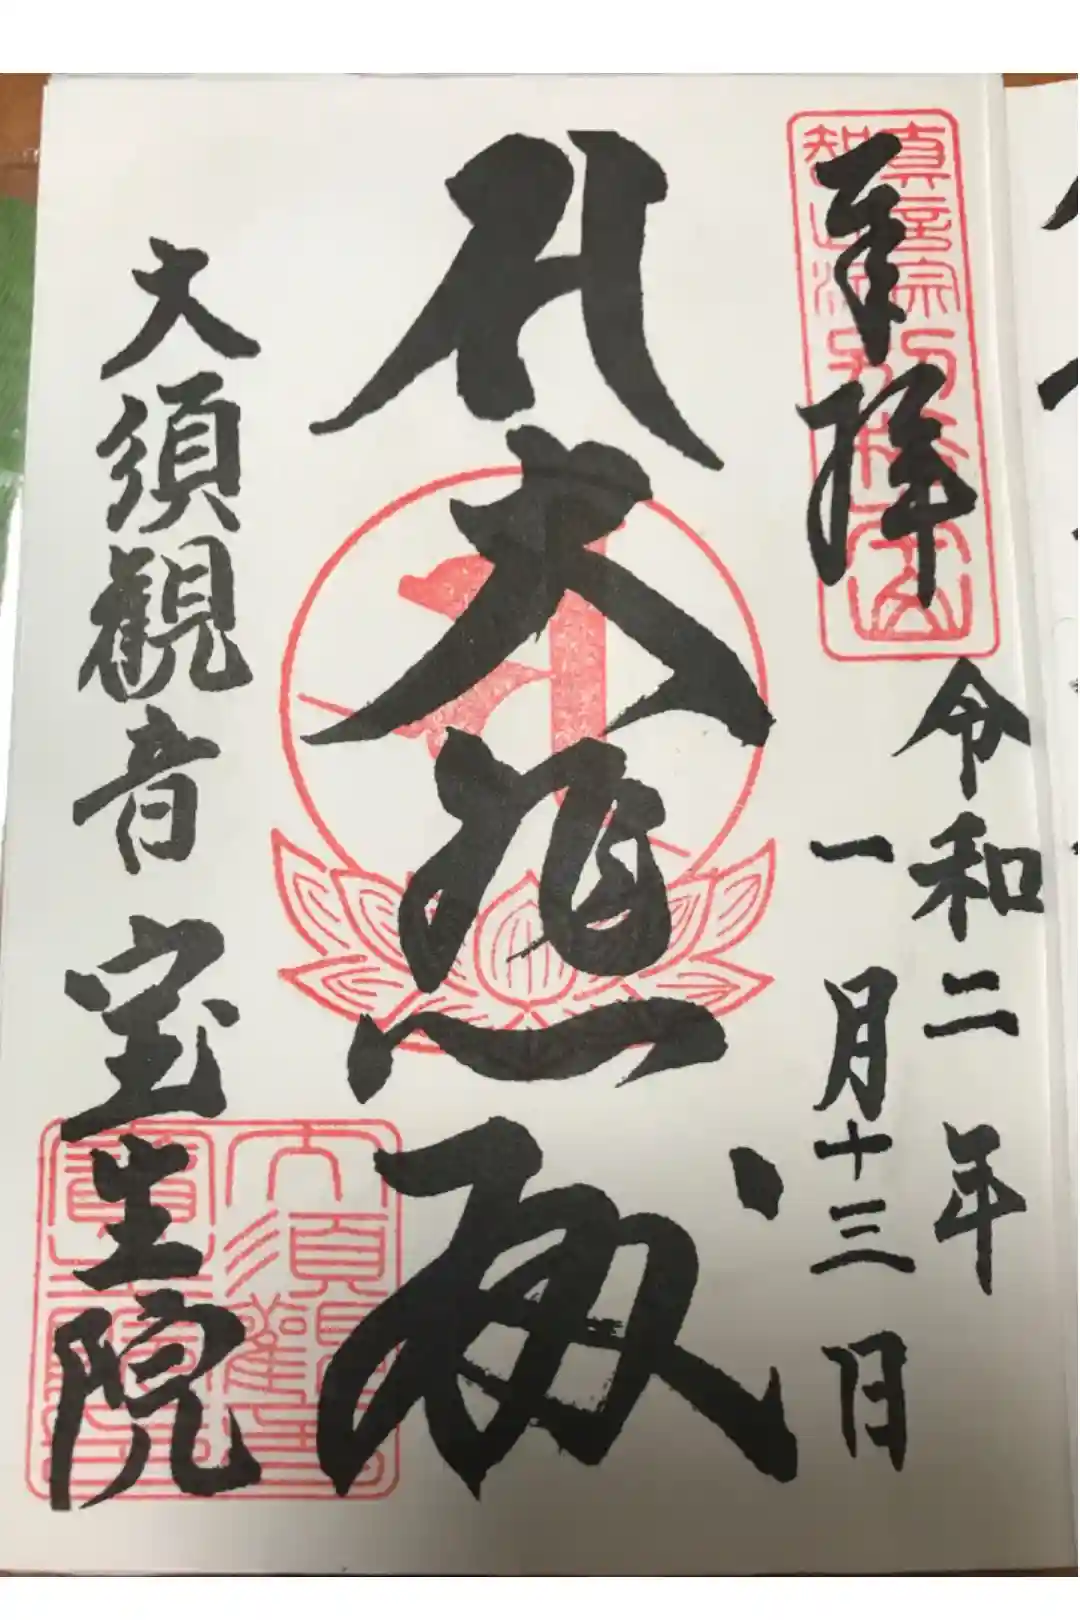 奉拝
真言宗
智山派
令和二年
一月十三日
大悲殿
大須観音 宝生院
大須觀音